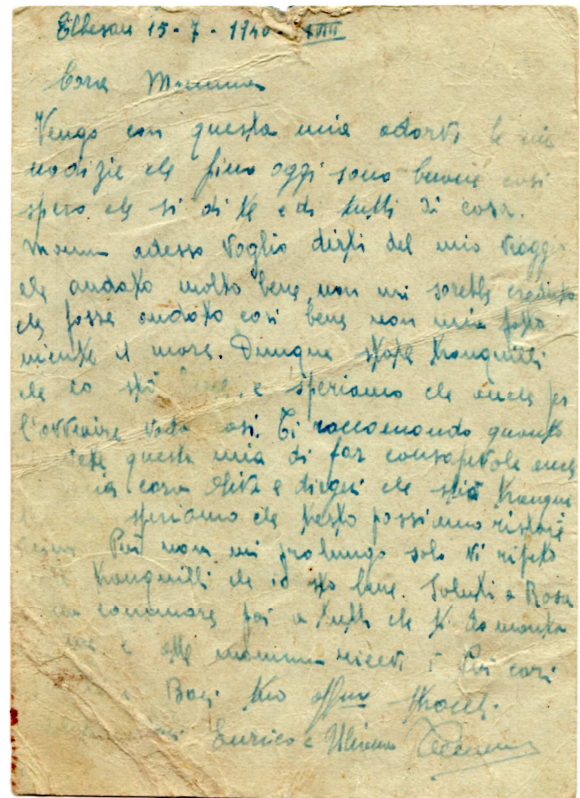 Elbasan 15-7-1940- XVIII
Cara Mamma
Vengo con questa mia a darti le mie
nodizie che fino oggi sono buone cosi
spero che si di te e di tutti di casa.
Mamma adesso voglio dirti del mio viaggio
che andato molto bene non mi sarebbe creduto
che fosse andato cosi bene non mia fatto
niente il mare. Dunque state tranquilli
che io sto bene, e speriamo che anche per
l'avvenire vada cosi. Ti raccomando quanto
questa mia di far consapevole anche
cara e dirgli che stia tranqui
speriamo che presto possiamo
Più non mi prolungo solo vi ripeto
tranquilli che io sto bene. Saluti a Rosa
commare poi a tutti che ti domanta
e alle mamma ricevi i Più cari
e Baci tuo
Enrico e